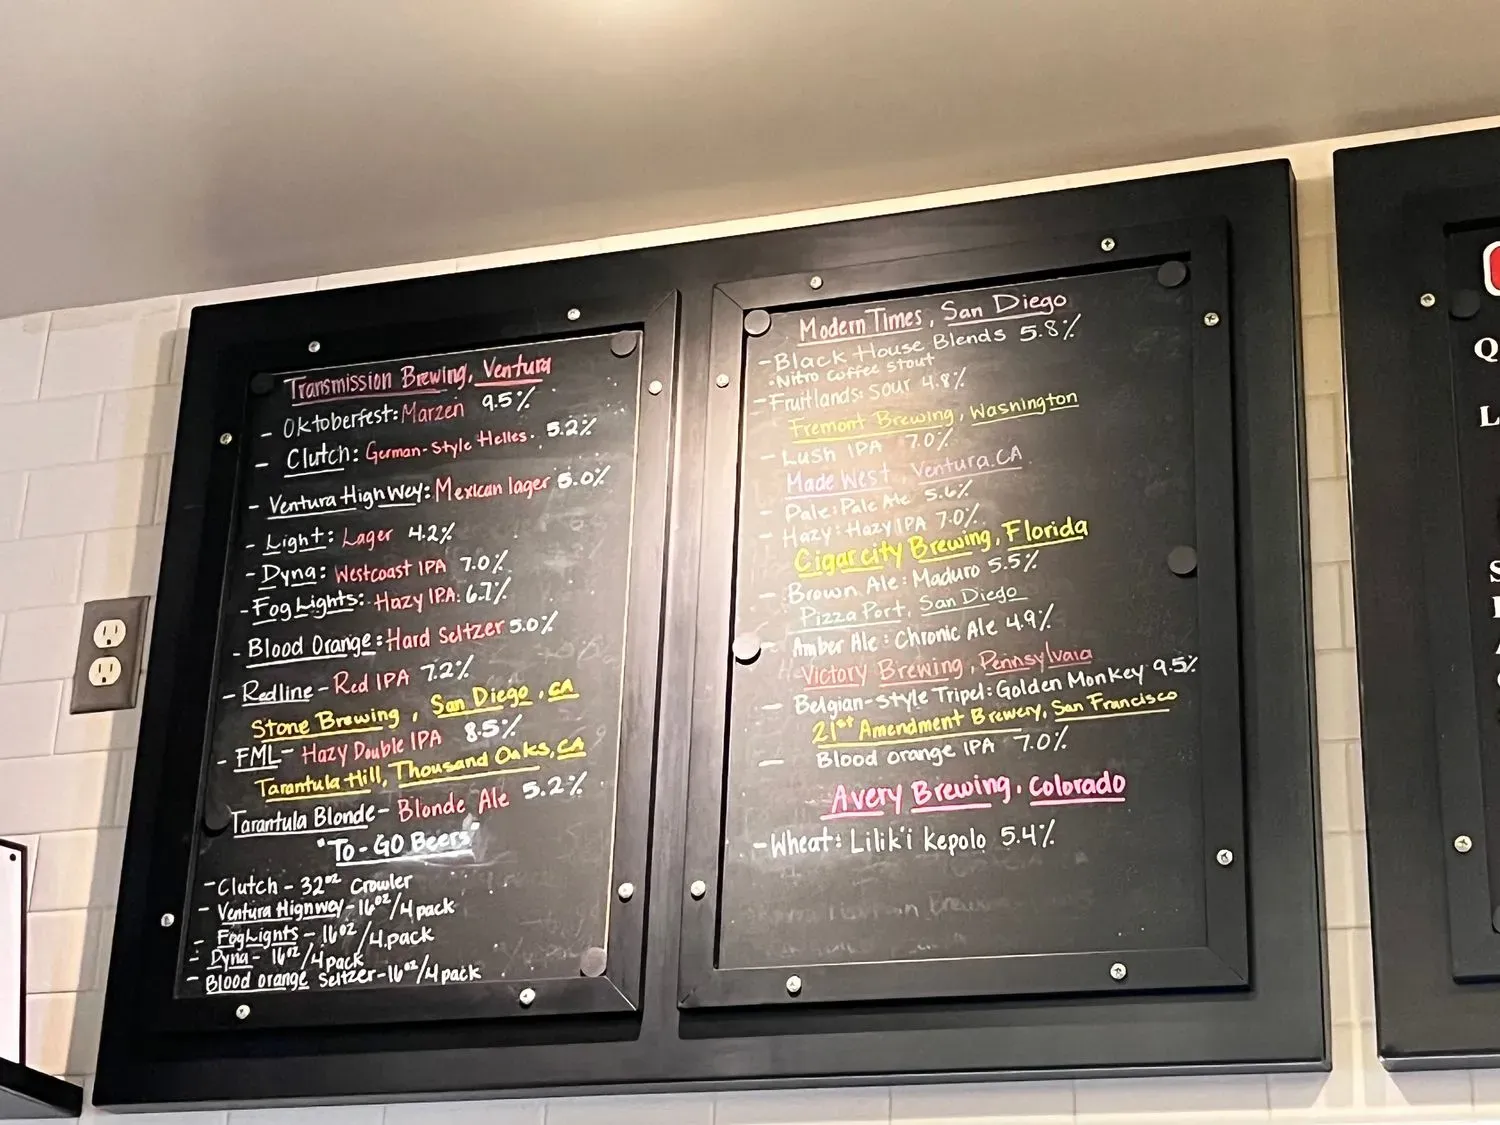 Transmission Brewing, Ventura
- Oktoberfest: Marzen 9.5%
- Clutch: German-Style Helles. 5.2%
- Ventura HighWey: Mexican lager 5.0%
- Light: Lager 4.2%
- Dyna: Westcoast IPA 7.0%
- Fog Lights: Hazy IPA: 6.7%
- Blood Orange: Hard Seltzer 5.0%
- Redline - Red IPA 7.2%
Stone Brewing, San Diego, CA
- FML - Hazy Double IPA 8.5%
Tarantula Hill, Thousand Oaks, CA
Tarantula Blonde - Blonde Ale 5.2%
"To-GO Beers"
- Clutch - 32oz Crowler
- Ventura Highway - 16oz/4pack
- FogLights - 16oz/4.pack
- Dyna - 16oz/4pack
- Blood orange Seltzer - 16oz/4pack
Modern Times, San Diego
- Black House Blends 5.8%
• Nitro Coffee Stout
- Fruitlands: Sour 4.8%
Fremont Brewing, Washington
- Lush IPA 7.0%
Made West, Ventura. CA
- Pale: Pale Ale 5.6%
- Hazy: Hazy IPA 7.0%
Cigar city Brewing, Florida
- Brown Ale: Maduro 5.5%
Pizza Port, San Diego
- Amber Ale: Chronic Ale 4.9%
Victory Brewing, Pennsylvaia
- Belgian-style Tripel: Golden Monkey 9.5%
21st Amendment Brewery, San Francisco
- Blood orange IPA 7.0%
Avery Brewing, Colorado
- Wheat: Lilik'i Kepolo 5.4%
Q
L